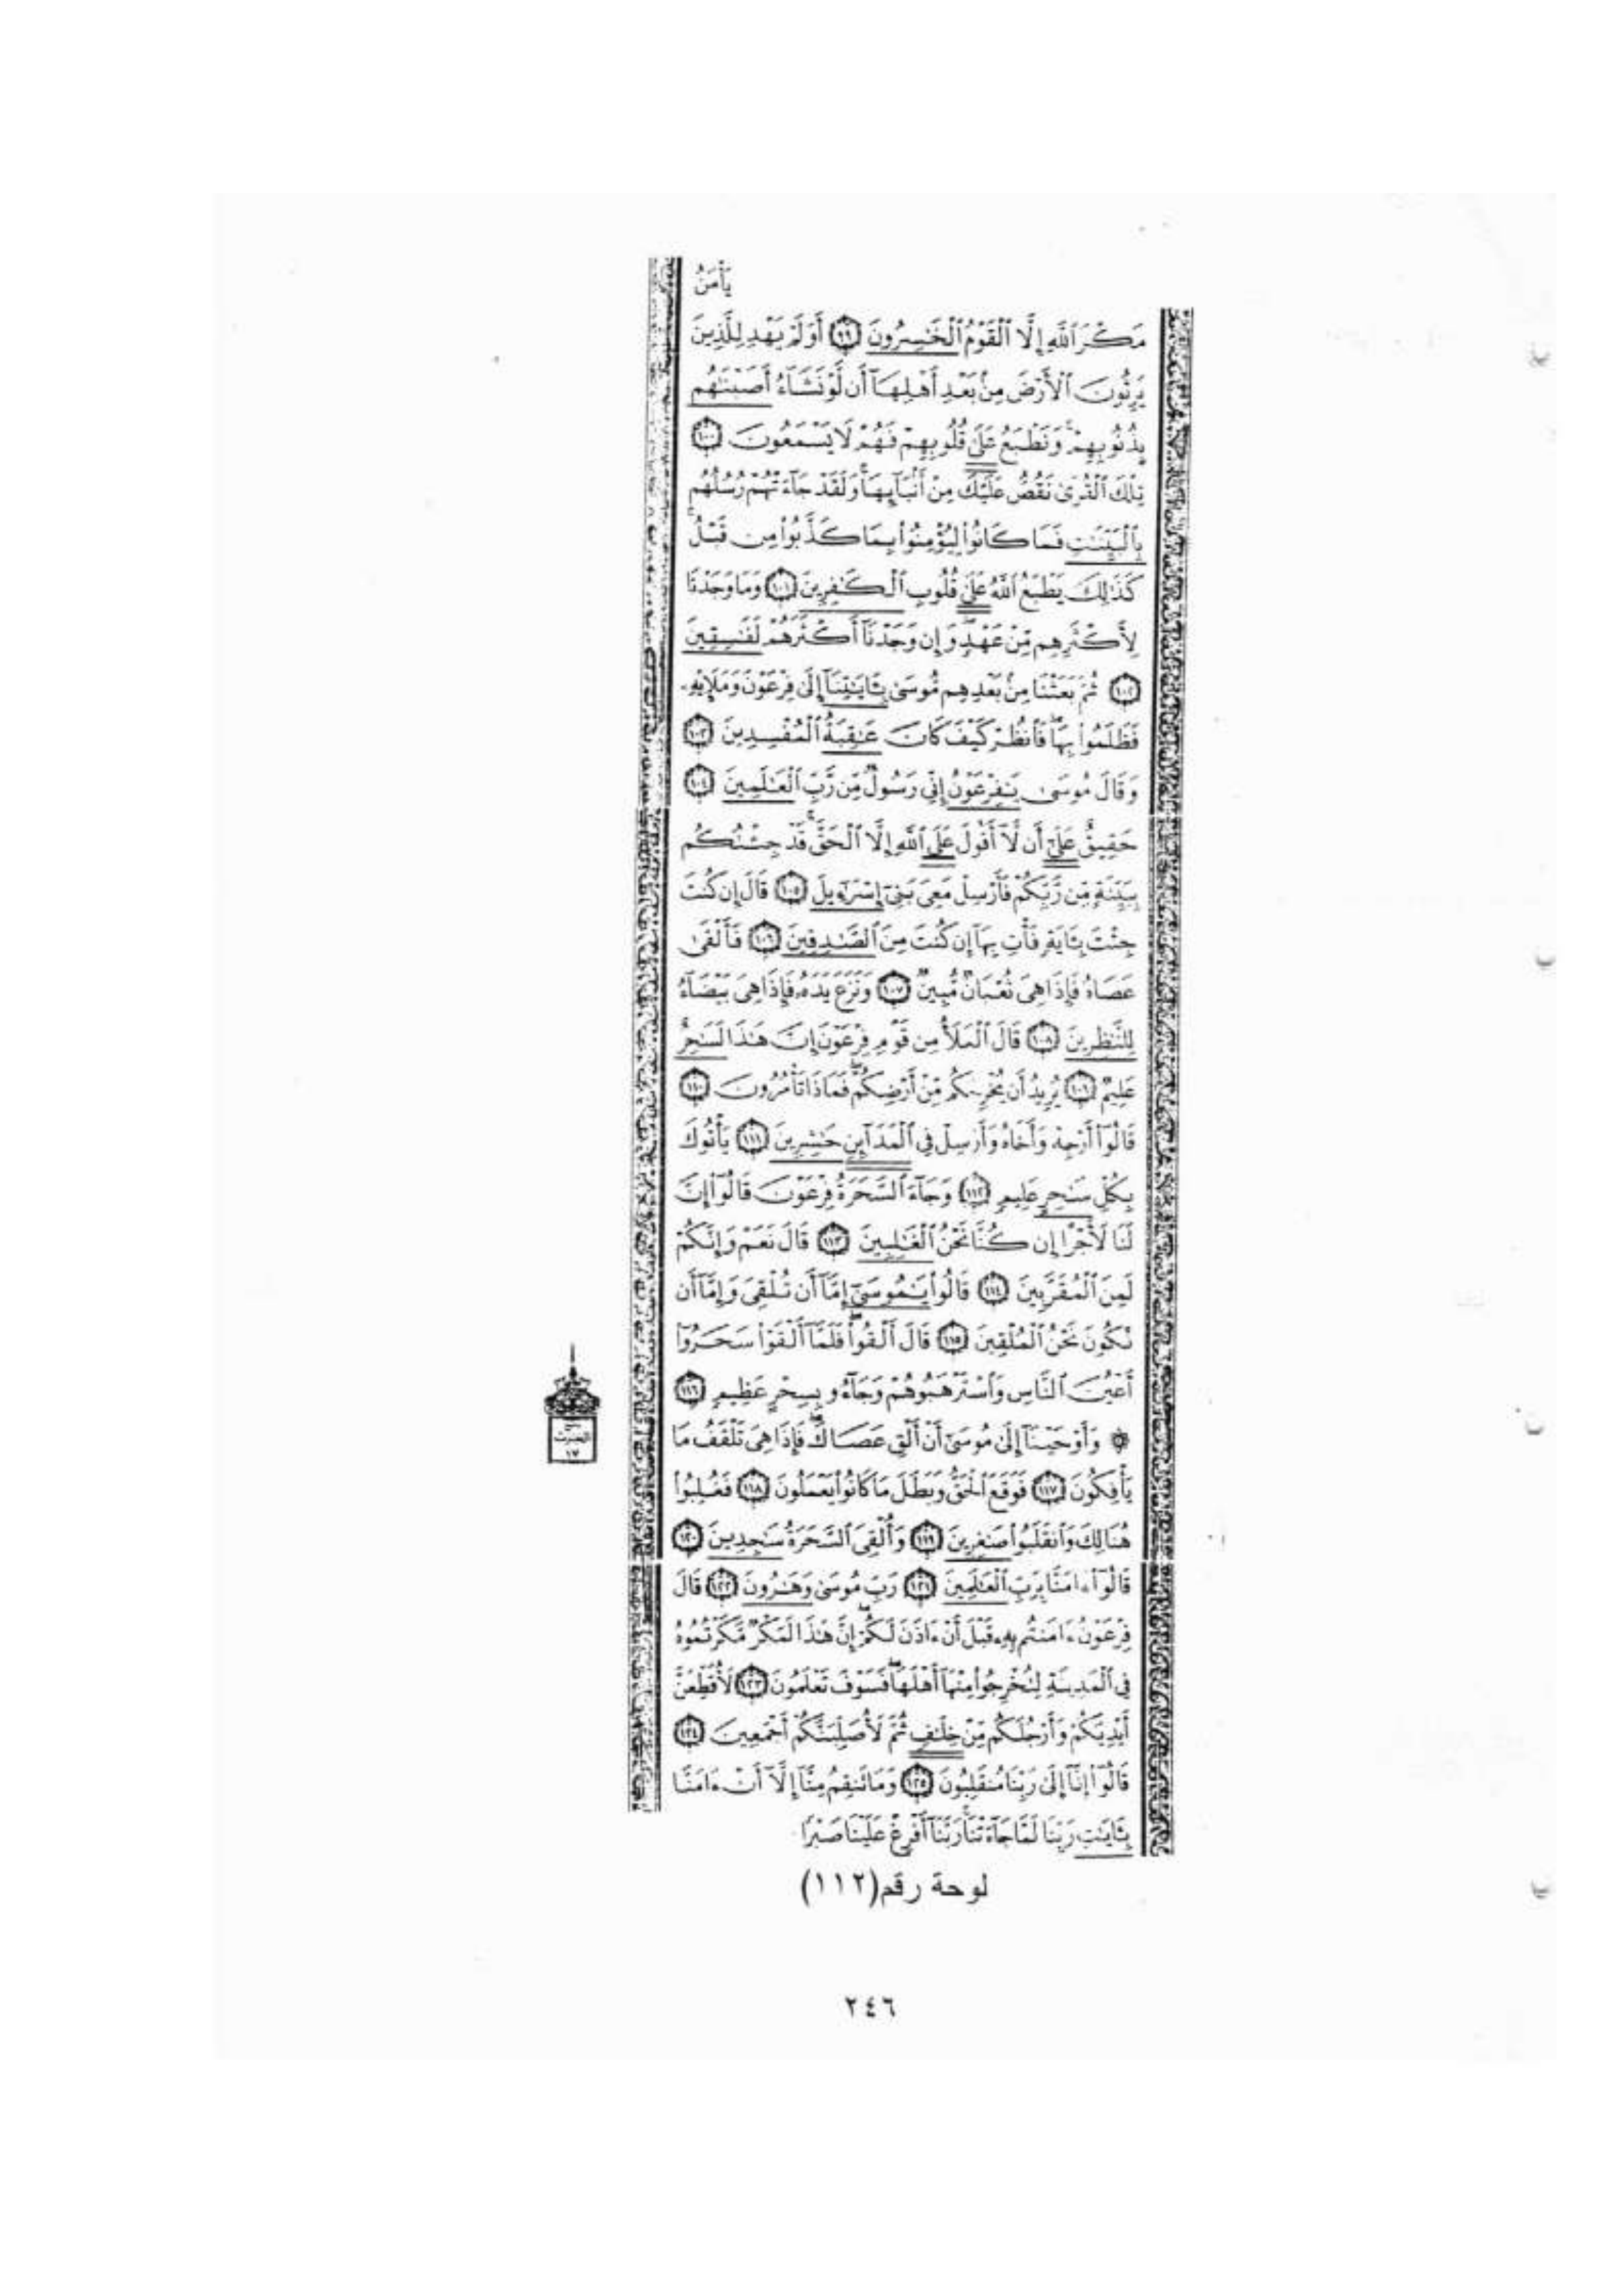 يَأْمَنُ
مَكْرَ ٱللَّهِ إِلَّا ٱلْقَوْمُ ٱلْخَـٰسِرُونَ ٩٩ أَوَلَمْ يَهْدِ لِلَّذِينَ
يَرِثُونَ ٱلْأَرْضَ مِنۢ بَعْدِ أَهْلِهَآ أَن لَّوْ نَشَآءُ أَصَبْنَـٰهُم
بِذُنُوبِهِمْ ۚ وَنَطْبَعُ عَلَىٰ قُلُوبِهِمْ فَهُمْ لَا يَسْمَعُونَ ١٠٠
تِلْكَ ٱلْقُرَىٰ نَقُصُّ عَلَيْكَ مِنْ أَنۢبَآئِهَا ۚ وَلَقَدْ جَآءَتْهُمْ رُسُلُهُم
بِٱلْبَيِّنَـٰتِ فَمَا كَانُوا۟ لِيُؤْمِنُوا۟ بِمَا كَذَّبُوا۟ مِن قَبْلُ ۚ
كَذَٰلِكَ يَطْبَعُ ٱللَّهُ عَلَىٰ قُلُوبِ ٱلْكَـٰفِرِينَ ١٠١ وَمَا وَجَدْنَا
لِأَكْثَرِهِم مِّنْ عَهْدٍ ۖ وَإِن وَجَدْنَآ أَكْثَرَهُمْ لَفَـٰسِقِينَ
١٠٢ ثُمَّ بَعَثْنَا مِنۢ بَعْدِهِم مُّوسَىٰ بِـَٔايَـٰتِنَآ إِلَىٰ فِرْعَوْنَ وَمَلَإِي۟هِۦ
فَظَلَمُوا۟ بِهَا ۖ فَٱنظُرْ كَيْفَ كَانَ عَـٰقِبَةُ ٱلْمُفْسِدِينَ ١٠٣
وَقَالَ مُوسَىٰ يَـٰفِرْعَوْنُ إِنِّى رَسُولٌ مِّن رَّبِّ ٱلْعَـٰلَمِينَ ١٠٤
حَقِيقٌ عَلَىٰٓ أَن لَّآ أَقُولَ عَلَى ٱللَّهِ إِلَّا ٱلْحَقَّ ۚ قَدْ جِئْتُكُم
بِبَيِّنَةٍ مِّن رَّبِّكُمْ فَأَرْسِلْ مَعِىَ بَنِىٓ إِسْرَٰٓءِيلَ ١٠٥ قَالَ إِن كُنتَ
جِئْتَ بِـَٔايَةٍ فَأْتِ بِهَآ إِن كُنتَ مِنَ ٱلصَّـٰدِقِينَ ١٠٦ فَأَلْقَىٰ
عَصَاهُ فَإِذَا هِىَ ثُعْبَانٌ مُّبِينٌ ١٠٧ وَنَزَعَ يَدَهُۥ فَإِذَا هِىَ بَيْضَآءُ
لِلنَّـٰظِرِينَ ١٠٨ قَالَ ٱلْمَلَأُ مِن قَوْمِ فِرْعَوْنَ إِنَّ هَـٰذَا لَسَـٰحِرٌ
عَلِيمٌ ١٠٩ يُرِيدُ أَن يُخْرِجَكُم مِّنْ أَرْضِكُمْ ۖ فَمَاذَا تَأْمُرُونَ ١١٠
قَالُوٓا۟ أَرْجِهْ وَأَخَاهُ وَأَرْسِلْ فِى ٱلْمَدَآئِنِ حَـٰشِرِينَ ١١١ يَأْتُوكَ
بِكُلِّ سَـٰحِرٍ عَلِيمٍ ١١٢ وَجَآءَ ٱلسَّحَرَةُ فِرْعَوْنَ قَالُوٓا۟ إِنَّ
لَنَا لَأَجْرًا إِن كُنَّا نَحْنُ ٱلْغَـٰلِبِينَ ١١٣ قَالَ نَعَمْ وَإِنَّكُمْ
لَمِنَ ٱلْمُقَرَّبِينَ ١١٤ قَالُوا۟ يَـٰمُوسَىٰٓ إِمَّآ أَن تُلْقِىَ وَإِمَّآ أَن
نَّكُونَ نَحْنُ ٱلْمُلْقِينَ ١١٥ قَالَ أَلْقُوا۟ ۖ فَلَمَّآ أَلْقَوْا۟ سَحَرُوٓا۟
أَعْيُنَ ٱلنَّاسِ وَٱسْتَرْهَبُوهُمْ وَجَآءُو بِسِحْرٍ عَظِيمٍ ١١٦
۞ وَأَوْحَيْنَآ إِلَىٰ مُوسَىٰٓ أَنْ أَلْقِ عَصَاكَ ۖ فَإِذَا هِىَ تَلْقَفُ مَا
يَأْفِكُونَ ١١٧ فَوَقَعَ ٱلْحَقُّ وَبَطَلَ مَا كَانُوا۟ يَعْمَلُونَ ١١٨ فَغُلِبُوا۟
هُنَالِكَ وَٱنقَلَبُوا۟ صَـٰغِرِينَ ١١٩ وَأُلْقِىَ ٱلسَّحَرَةُ سَـٰجِدِينَ ١٢٠
قَالُوٓا۟ ءَامَنَّا بِرَبِّ ٱلْعَـٰلَمِينَ ١٢١ رَبِّ مُوسَىٰ وَهَـٰرُونَ ١٢٢ قَالَ
فِرْعَوْنُ ءَامَنتُم بِهِۦ قَبْلَ أَنْ ءَاذَنَ لَكُمْ ۖ إِنَّ هَـٰذَا لَمَكْرٌ مَّكَرْتُمُوهُ
فِى ٱلْمَدِينَةِ لِتُخْرِجُوا۟ مِنْهَآ أَهْلَهَا ۖ فَسَوْفَ تَعْلَمُونَ ١٢٣ لَأُقَطِّعَنَّ
أَيْدِيَكُمْ وَأَرْجُلَكُم مِّنْ خِلَـٰفٍ ثُمَّ لَأُصَلِّبَنَّكُمْ أَجْمَعِينَ ١٢٤
قَالُوٓا۟ إِنَّآ إِلَىٰ رَبِّنَا مُنقَلِبُونَ ١٢٥ وَمَا تَنقِمُ مِنَّآ إِلَّآ أَنْ ءَامَنَّا
بِـَٔايَـٰتِ رَبِّنَا لَمَّا جَآءَتْنَا ۚ رَبَّنَآ أَفْرِغْ عَلَيْنَا صَبْرًا
الحزب
١٧
لوحة رقم(١١٢)
٢٤٦